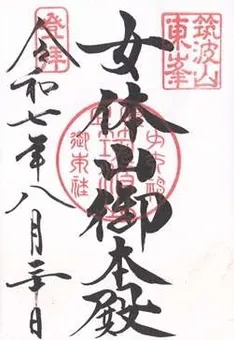 筑波山
東峯
女体山御本殿
登拝
令和七年八月三十日